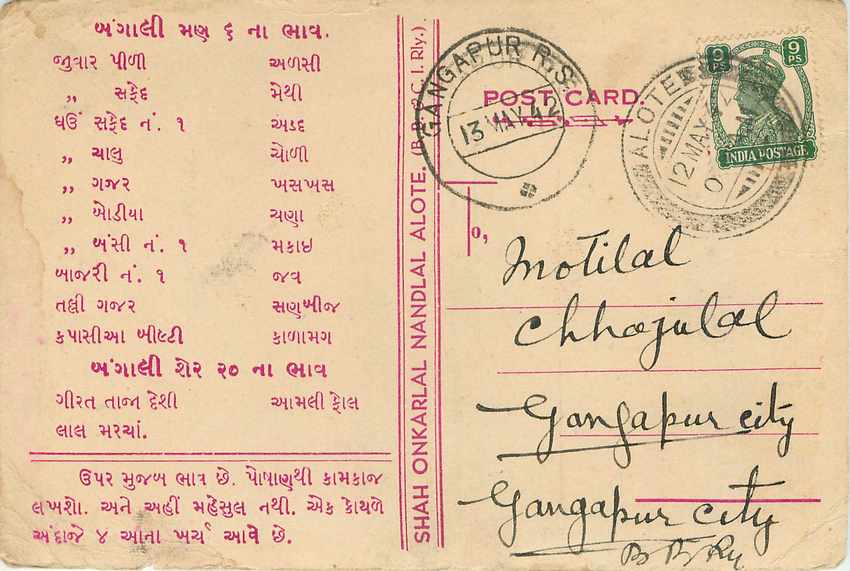 બંગાલી મણ ૬ ના ભાવ.
જીુવાર પીળી અળસી
,, સફેદ મેથી
ઘઉં સફેદ નં. ૧ અડદ
,, ચાલુ ચોળી
,, ગજર ખસખસ
,, બોડીયા ચણા
,, બંસી નં. ૧ મકાઇ
બાજરી નં. ૧ જવ
તલ્લી ગજર સણબીજ
કપાસીઆ બીલ્ટી કાળામગ
બંગાલી શેર ૨૦ ના ભાવ
ગીરત તાજા દેશી આમલી ફોલ
લાલ મરચાં.
ઉપર મુજબ ભાવ છે. પોષાણથી કામકાજ
લખશો. અને અહીં મહેસુલ નથી. એક કોથળે
અંદાજે ૪ આના ખર્ચ આવે છે.
SHAH ONKARLAL NANDLAL ALOTE. (B. B. & C. I. Rly.)
GANGAPUR R.S.
13 MAY 42
POST CARD.
ALOTE
12 MAY
9 PS
9 PS
INDIA POSTAGE
To,
Motilal
Chhajulal
Gangapur city
Gangapur city
B B Ry